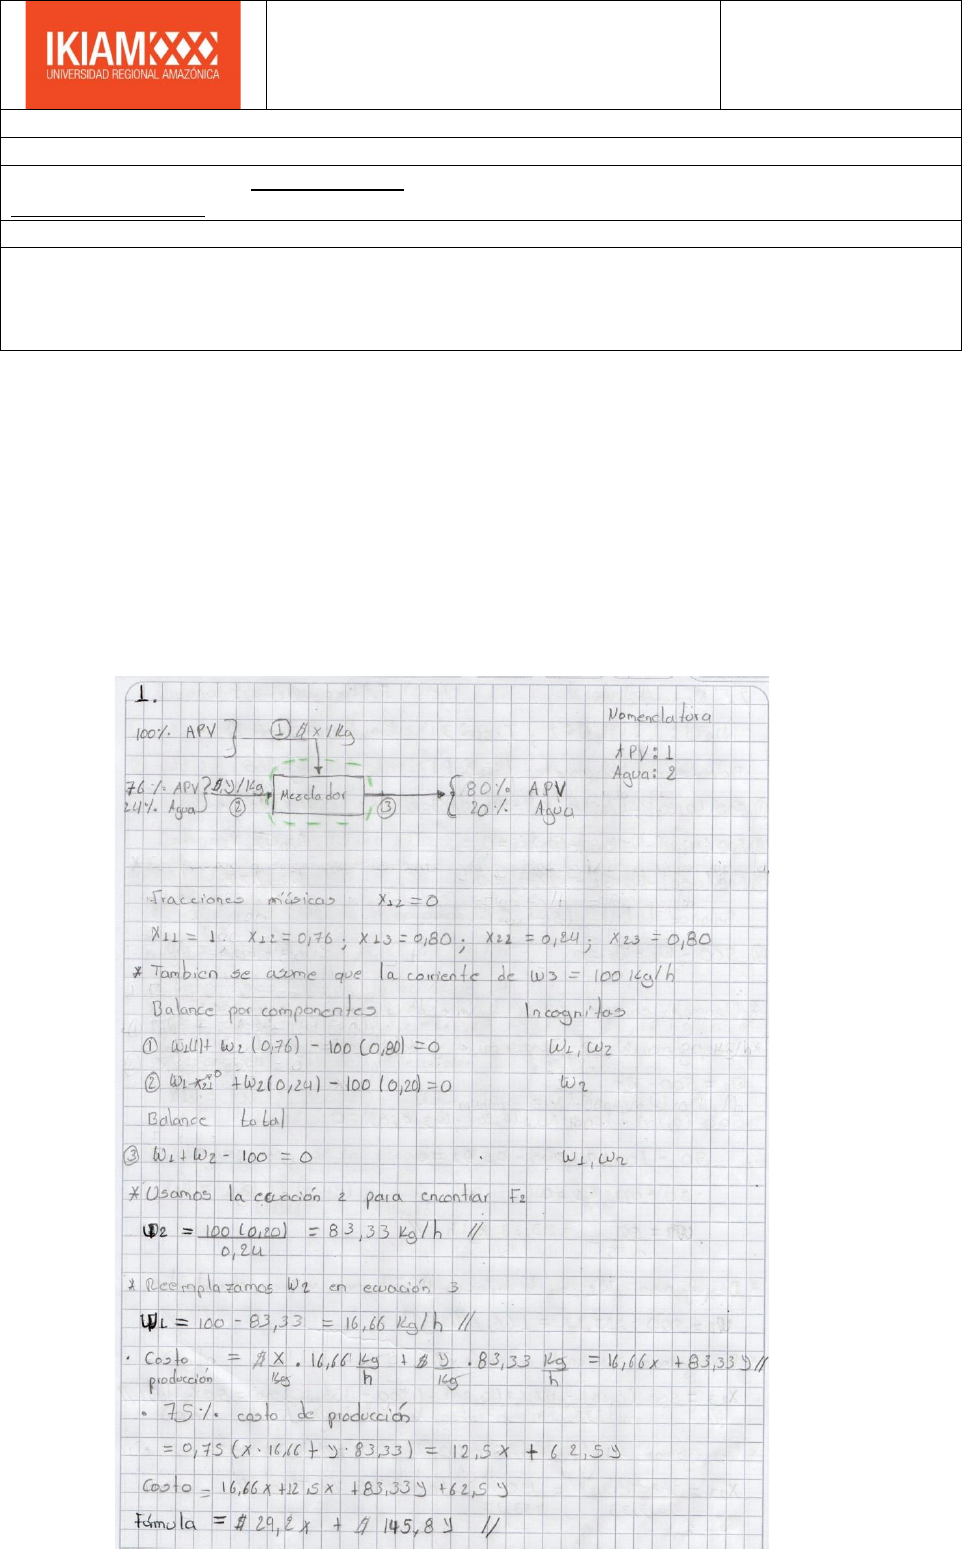 IKIAM
UNIVERSIDAD REGIONAL AMAZÓNICA
1.
Nomenclatura
100% APV ① $x/Kg
APV: 1
Agua: 2
76% APV $y/Kg Mezclador 80% APV
24% Agua ② ③ 20% Agua
Fracciones másicas x12=0
x11 = 1. x12=0,76; x13=0,80; x22=0,24; x23=0,80
* Tambien se asume que la corriente de W3 = 100 Kg/h
Balance por componentes Incognitas
① W1(1)+ W2(0,76) - 100(0,80)=0 W1, W2
② W1 x21⁰ + W2(0,24) - 100(0,20)=0 W2
Balance total
③ W1+W2 - 100 = 0 W1, W2
* Usamos la ecuación 2 para encontrar F2
W2 = 100(0,20) = 83,33 Kg/h //
0,24
* Reemplazamos W2 en ecuación 3
W1 = 100 - 83,33 = 16,66 Kg/h //
. Costo = $ x . 16,66 Kg + $ y . 83,33 Kg = 16,66x + 83,33y//
producción Kg h Kg h
. 75% costo de producción
= 0,75(x.16,66+ y.83,33) = 12,5x + 62,5y
Costo = 16,66x+12,5x +83,33y+62,5y
Fórmula = $ 29,2x + $ 145,8y //